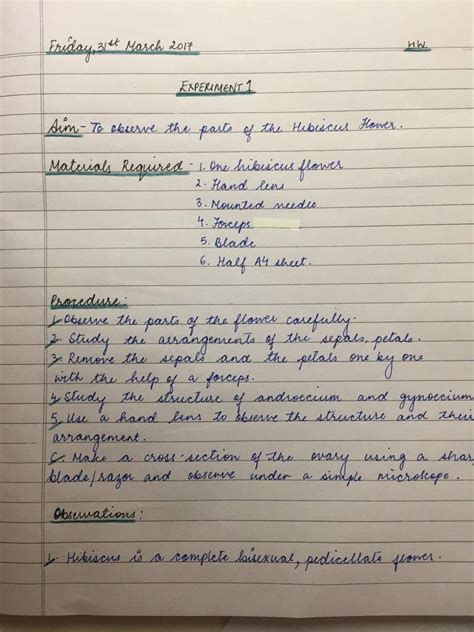 Friday, 31st March 2017 HW
EXPERIMENT 1
Aim - To observe the parts of the Hibiscus Flower.
Materials Required - 1. One hibiscus flower
2. Hand lens
3. Mounted needle
4. Forceps
5. Blade
6. Half A4 sheet.
Procedure:
1. Observe the parts of the flower carefully.
2. Study the arrangements of the sepals, petals.
3. Remove the sepals and the petals one by one
with the help of a forceps.
4. Study the structure of androecium and gynoecium
5. Use a hand lens to observe the structure and their
arrangement.
6. Make a cross-section of the ovary using a shar
blade/razor and observe under a simple microscope.
Observations:
1. Hibiscus is a complete bisexual, pedicellate flower.